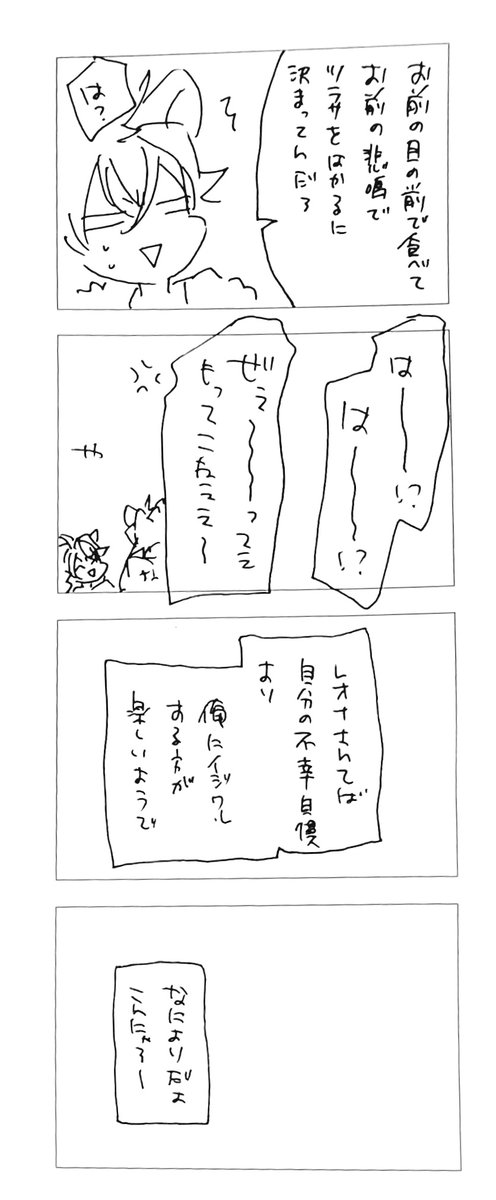 お前の目の前で食べて
お前の悲鳴で
ツラサをはかるに
決まってんだろ
は?
は――――!?
は――――!?
ぜえ〜〜〜ってえ
もってこねえええ〜
や
レオナさんてば
自分の不幸自慢
より
俺にイジワル
する方が
楽しいようで
なによりだよ
こんにゃろ〜